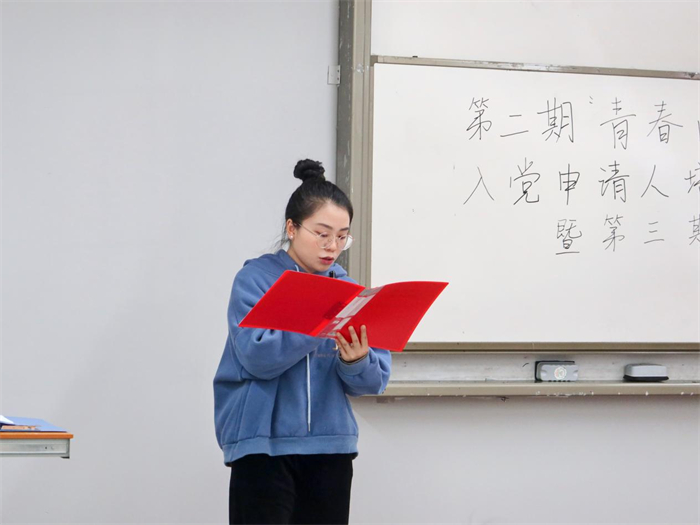 第二期“青春
入党申请人培
暨第三期